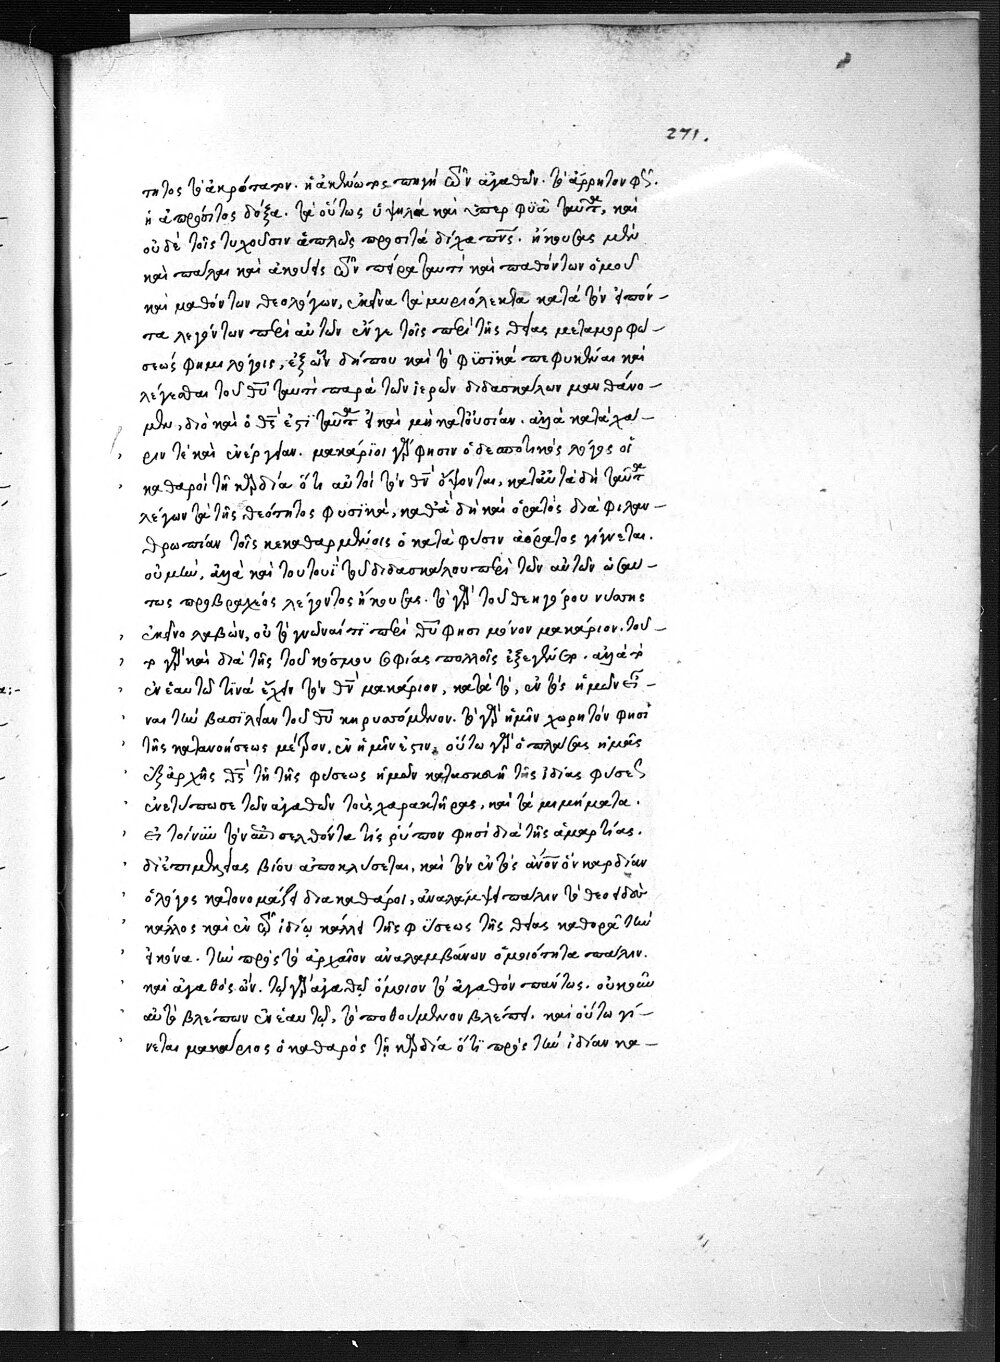 271.
τητος τὸ ἀκρότατον. ἡ ἀκένωτος πηγὴ τῶν ἀγαθῶν. τὸ ἄρρητον φῶς.
ἡ ἀπρόσιτος δόξα. τὰ οὕτως ὑψηλὰ καὶ ὑπερφυᾶ ταῦτα, καὶ
οὐδὲ τοῖς τυχοῦσιν ἁπλῶς προσιτὰ δίχα πνς. ἤκουσας μὲν
καὶ πάλαι καὶ ἀκούεις τῶν πεῖρα ταυτὶ καὶ παθόντων ὁμοῦ
καὶ μαθόντων θεολόγων, ἐκεῖνα τὰ μυριόλεκτα κατὰ τὸν εἰπόν-
τα λεγόντων περὶ αὐτῶν ἔν γε τοῖς περὶ τῆς θείας μεταμορφώ-
σεώς φημι λόγοις, ἐξ ὧν δήπου καὶ τὸ φϋσϊκὰ πεφυκέναι καὶ
λέγεσθαι τοῦ θυ ταυτὶ παρὰ τῶν ἱερῶν διδασκάλων μανθάνο-
μεν, διὸ καὶ ὁ θς ἐστϊ ταῦτα εἰ καὶ μὴ κατ' οὐσίαν. ἀλλὰ κατὰ χά-
ριν τὲ καὶ ἐνέργειαν. μακάριοι γάρ φησιν ὁ δεσποτικὸς λόγος οἱ
καθαροὶ τῇ καρδίᾳ ὅτι αὐτοὶ τὸν θν ὄψονται, κατ' αὐτὰ δὴ ταῦτα
λέγων τὰ τῆς θεότητος φυσϊκά, καθὰ δὴ καὶ ὁρατὸς διὰ φιλαν-
θρωπίαν τοῖς κεκαθαρμένοις ὁ κατὰ φύσιν ἀόρατος γίγνεται.
οὐ μὴν, ἀλλὰ καὶ τουτουῒ τοῦ διδασκάλου περὶ τῶν αὐτῶν ὡσαύ-
τως πρὸ βραχέος λέγοντος ἤκουσας. τὸ γὰρ τοῦ θεηγόρου νύσσης
ἐκεῖνο λαβών, οὐ τὸ γνῶναί τϊ περὶ θυ φησι μόνον μακάριον. τοῦ-
το γὰρ καὶ διὰ τῆς τοῦ κόσμου σοφίας πολλοῖς ἐξεγένετο. ἀλλὰ τὸ
ἐν ἑαυτῶ τϊνὰ ἔχειν τὸν θν μακάριον, κατὰ τὸ, ἐντὸς ἡμῶν εἶ-
ναι τὴν βασιλείαν τοῦ θυ κηρυσσόμενον. τὸ γὰρ ἡμῖν χωρητόν φησϊ
τῆς κατανοήσεως μέτρον, ἐν ἡμῖν ἐστιν. οὕτω γὰρ ὁ πλάσας ἡμᾶς
ἐξ ἀρχῆς θς τῇ τῆς φύσεως ἡμῶν κατασκευῇ τῆς ἰδίας φύσεως
ἐνετύπωσε τῶν ἀγαθῶν τοὺς χαρακτῆρας, καὶ τὰ μιμήματα.
εἰ τοίνυν τὸν ἐπεισελθόντα τίς ῥύπον φησὶ διὰ τῆς ἁμαρτίας.
δι' ἐπιμελείας βίου ἀποκλύσεται, καὶ τὸν ἐντὸς ἀνον ὃν καρδίαν
ὁ λόγος κατονομάζει διακαθάροι, ἀναλάμψει πάλιν τὸ θεοειδὲς
κάλλος καὶ ἐν τῶ ἰδίῳ κάλλει τῆς φύσεως τῆς θείας καθορᾶ τὴν
εἰκόνα. τὴν πρὸς τὸ ἀρχαῖον ἀναλαμβάνων ὁμοιότητα πάλιν.
καὶ ἀγαθὸς ὤν. τῷ γὰρ ἀγαθῷ ὅμοιον τὸ ἀγαθὸν πάντως. οὐκοῦν
αὐτὸ βλέπων ἐν ἑαυτῷ, τὸ ποθούμενον βλέπει. καὶ οὕτω γί-
νεται μακάριος ὁ καθαρὸς τῇ καρδίᾳ ὅτϊ πρὸς τὴν ἰδίαν κα-